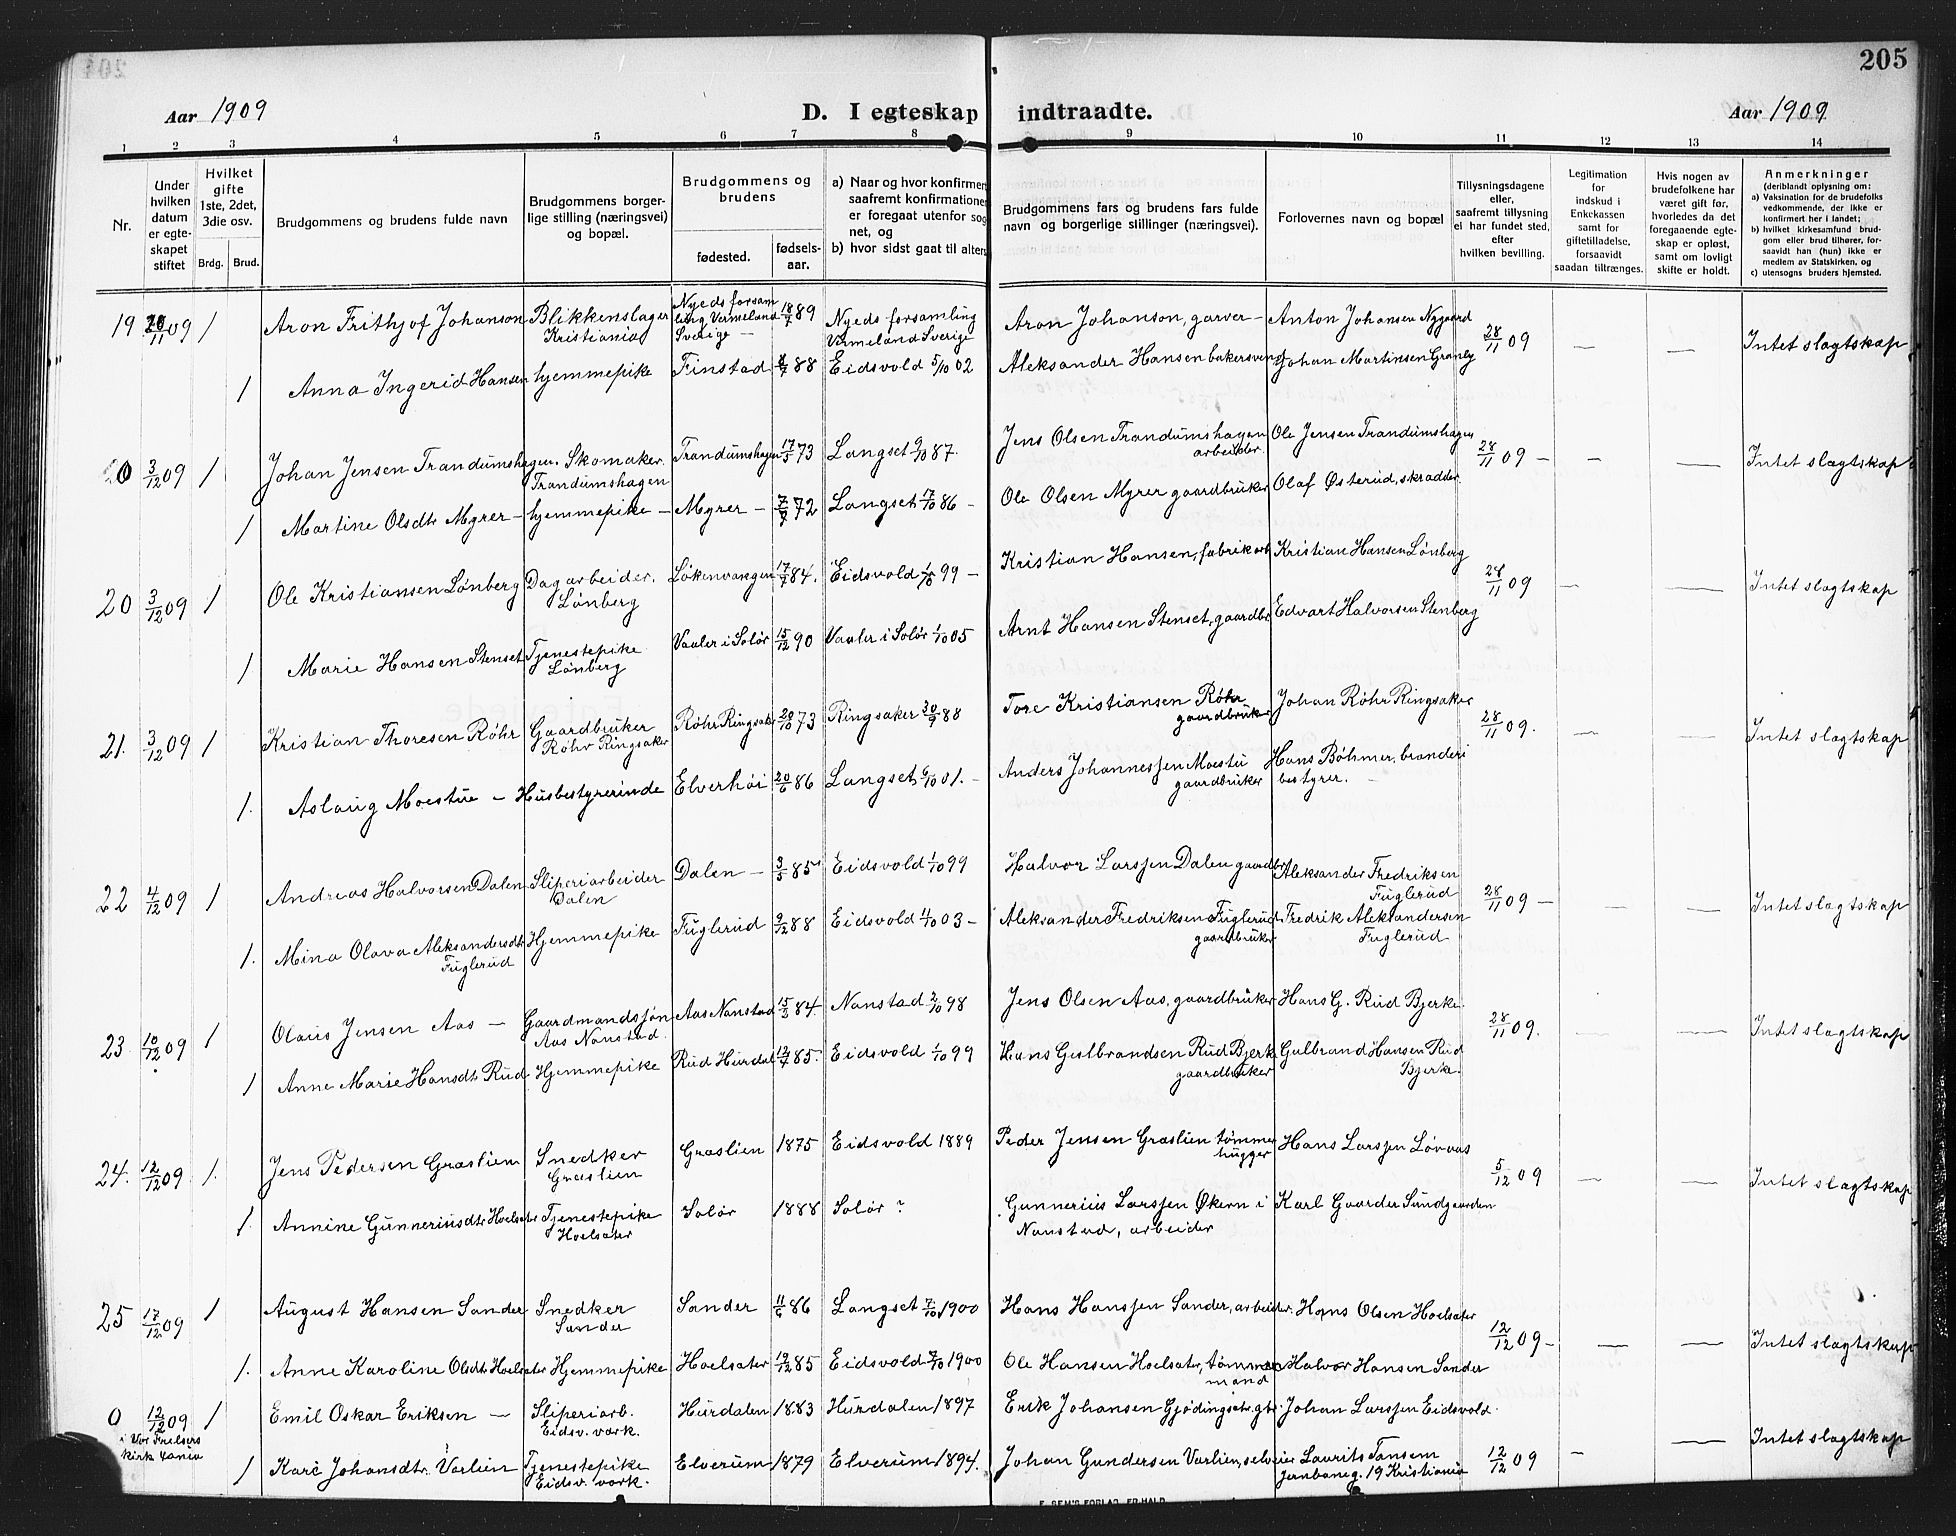 205
Aar 1909
D. I egteskap indtraadte.
Aar 1909
1 2 3 4 5 6 7 8 9 10 11 12 13 14
Nr.
Under hvilken datum er egteskapet stiftet
Hvilket gifte 1ste, 2det, 3die osv.
Brdg. Brud.
Brudgommens og brudens fulde navn
Brudgommens borgerlige stilling (næringsvei) og bopæl.
Brudgommens og brudens
fødested.
fødselsaar.
a) Naar og hvor konfirmert
saafremt konfirmationen
er foregaat utenfor sognet, og
b) hvor sidst gaat til alters
Brudgommens fars og brudens fars fulde navn og borgerlige stillinger (næringsvei).
Forlovernes navn og bopæl
Tillysningsdagene eller, saafremt tillysning ei har fundet sted, efter hvilken bevilling.
Legitimation for indskud i Enkekassen samt for giftetilladelse, forsaavidt saadan tiltrænges.
Hvis nogen av brudefolkene har været gift før, hvorledes da det foregaaende egteskap er opløst, samt om lovligt skifte er holdt.
Anmerkninger
(deriblandt oplysning om:
a) Vaksination for de brudefolks vedkommende, der ikke er konfirmert her i landet;
b) hvilket kirkesamfund brudgom eller brud tilhører, forsaavidt han (hun) ikke er medlem av Statskirken, og
c) utensogns bruders hjemsted.
19 11 09 1 Aron Frithjof Johanson Blikkenslager Kristiania Nyeds forsamling Vermeland Sverige 18/7 89 Nyeds forsamling Vermeland Sverige Aron Johanson, garver – Anton Johansen Nygaard 28/11 09 — — Intet slagtskap
1 Anna Ingerid Hansen hjemmepike Finstad 88 Eidsvold 5/10 02 Aleksander Hansen bakersvend Johan Martinsen Granly
0 3/12 09 1 Johan Jensen Trandumshagen. Skomaker. Trandumshagen Trandumshagen 17/5 73 Langset 9/10 87. Jens Olsen Trandumshagen arbeider. Ole Jensen Trandumshagen 28/11 09 – — — Intet slagtskap
1 Martine Olsdtr Myrer – hjemmepike – Myrer – 72 Langset 17/10 86 – Ole Olsen Myrer gaardbruker Olaf Østerud, skradder
20 3/12 09 1 Ole Kristiansen Lønberg Dagarbeider. Lønberg Løkenvangen 17/7 84. Eidsvold 1/10 99 – Kristian Hansen, fabrikarb Kristian Hansen Lønberg 28/11 09 — — Intet slagtskap
1 Marie Hansen Stenset Tjenestepike Lønberg Vaaler i Solør 15/12 90 Vaaler i Solør 1/10 05 Arnt Hansen Stenset, gaardbr Edvart Halvorsen Stenberg
21. 3/12 09 1 Kristian Thoresen Røhr Gaardbruker Røhr Ringsaker Røhr Ringsaker 20/10 73 Ringsaker 30/9 88 Tore Kristiansen Røhr gaardbruker Johan Røhr Ringsaker 28/11 09. — — Intet slagtskap
1. Aslaug Moestue – Husbestyrerinde Elverhøi 20/6 86 Langset 6/10 01. – Anders Johannessen Moestu gaardbruker Hans Böhmer, branderi bestyrer.
22 4/12 09 1 Andreas Halvorsen Dalen Sliperiarbeider Dalen Dalen – 3/5 85 Eidsvold 1/10 99 Halvor Larssen Dalen gaardbr Aleksander Fredriksen Fuglerud 28/11 09 – — — Intet slagtskap
1. Mina Olava Aleksandersdt. Fuglerud Hjemmepike Fuglerud 9/12 88 Eidsvold 4/10 03 – Aleksander Fredriksen Fuglerud gaardbruker Fredrik Aleksandersen Fuglerud
23. 10/12 09 1 Olaus Jensen Aas – Gaardmandssøn Aas Nanstad. Aas Nanstad 15/3 84. Nanstad 2/10 98 Jens Olsen Aas, gaardbruker Hans G. Rud Bjerke. 28/11 09. — — Intet slagtskap
1 Anne Marie Hansdt. Rud Hjemmepike Rud Hurdal 12/7 85. Eidsvold 1/10 99 Hans Gulbrandsen Rud Bjerk. gaardbruker Gulbrand Hansen Rud Bjerk.
24. 12/12 09 1. Jens Pedersen Græslien Snedker Græslien Græslien 1875 Eidsvold 1889 Peder Jensen Græslien tømmerhugger Hans Larssen Løvaas 5/12 09 — — Intet slagtskap
1. Annine Gunneriusdtr Hoelsæter Tjenestepike Hoelsæter Solør 1888 Solør ? Gunnerius Larssen Økern i Nanstad, arbeider Karl Gaarder Sundgaarden
25 17/12 09 1 August Hansen Sander Snedker Sander Sander 11/6 86 Langset 7/10 1900 Hans Hanssen Sander, arbeider. Hans Olsen Hoelsæter 12/12 09 – — — Intet slagtskap
1. Anne Karoline Olsdtr. Hoelsæter Hjemmepike Hoelsæter 19/12 85 Eidsvold 7/10 1900 Ole Hansen Hoelsæter, tømmermand Halvor Hansen Sander
0 12/12 09 i Vor Frelsers kirk 1 Emil Oskar Eriksen – Sliperiarb. Eidsv. værk. Hurdalen 1883 Hurdalen 1897 Erik Johansen Gjødingsætr. gbr. Johan Larssen Eidsvold. 12/12 09 — — Intet slagtskap
1 Kari Johansdtr. Varlien Tjenestepike Eidsv. værk. Elverum 1879 Elverum 1894. Johan Gundersen Varlien, selveier Laurits Tansem Jernbaneg. 19 Kristiania
E. SEM'S FORLAG, FR.HALD